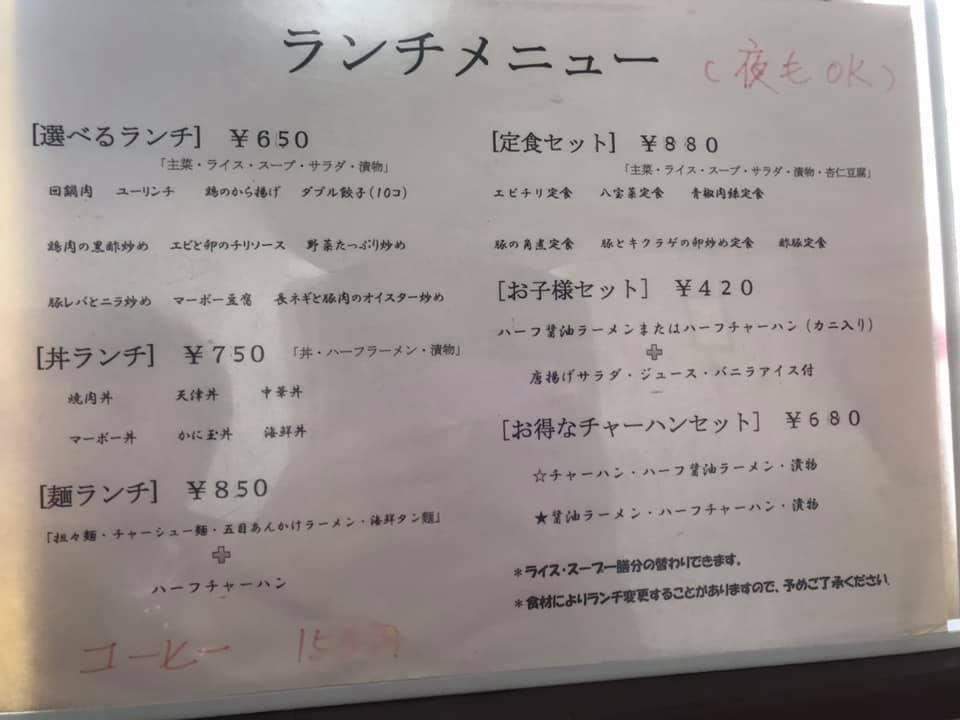 ランチメニュー
(夜もOK)
[選べるランチ] ￥650
「主菜・ライス・スープ・サラダ・漬物」
回鍋肉 ユーリンチ 鶏のから揚げ ダブル餃子(10コ)
鶏肉の黒酢炒め エビと卵のチリソース 野菜たっぷり炒め
豚レバとニラ炒め マーボー豆腐 長ネギと豚肉のオイスター炒め
[丼ランチ] ￥750 「丼・ハーフラーメン・漬物」
焼肉丼 天津丼 中華丼
マーボー丼 かに玉丼 海鮮丼
[麺ランチ] ￥850
「担々麺・チャーシュー麺・五目あんかけラーメン・海鮮タン麺」
+
ハーフチャーハン
コーヒー 円
[定食セット] ￥880
「主菜・ライス・スープ・サラダ・漬物・杏仁豆腐」
エビチリ定食 八宝菜定食 青椒肉絲定食
豚の角煮定食 豚とキクラゲの卵炒め定食 酢豚定食
[お子様セット] ￥420
ハーフ醤油ラーメンまたはハーフチャーハン(カニ入り)
+
唐揚げサラダ・ジュース・バニラアイス付
[お得なチャーハンセット] ￥680
☆チャーハン・ハーフ醤油ラーメン・漬物
★醤油ラーメン・ハーフチャーハン・漬物
*ライス・スープ一膳分の替わりできます。
*食材によりランチ変更することがありますので、予めご了承ください.